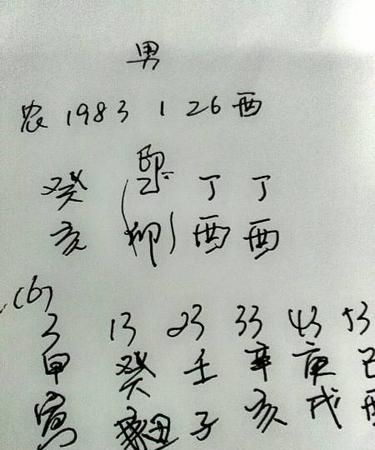 男
农 1983 1 26 酉
癸 丁 丁
亥 (卯) 酉 酉
(6)
3 13 23 33 43 53
甲 癸 壬 辛 庚 己
寅 丑 子 亥 戌 酉